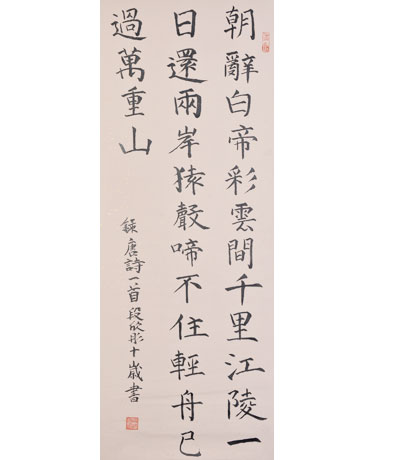 朝辭白帝彩雲間千里江陵一
日還兩岸猿聲啼不住輕舟已
過萬重山
錄唐詩一首段欣彤十歲書